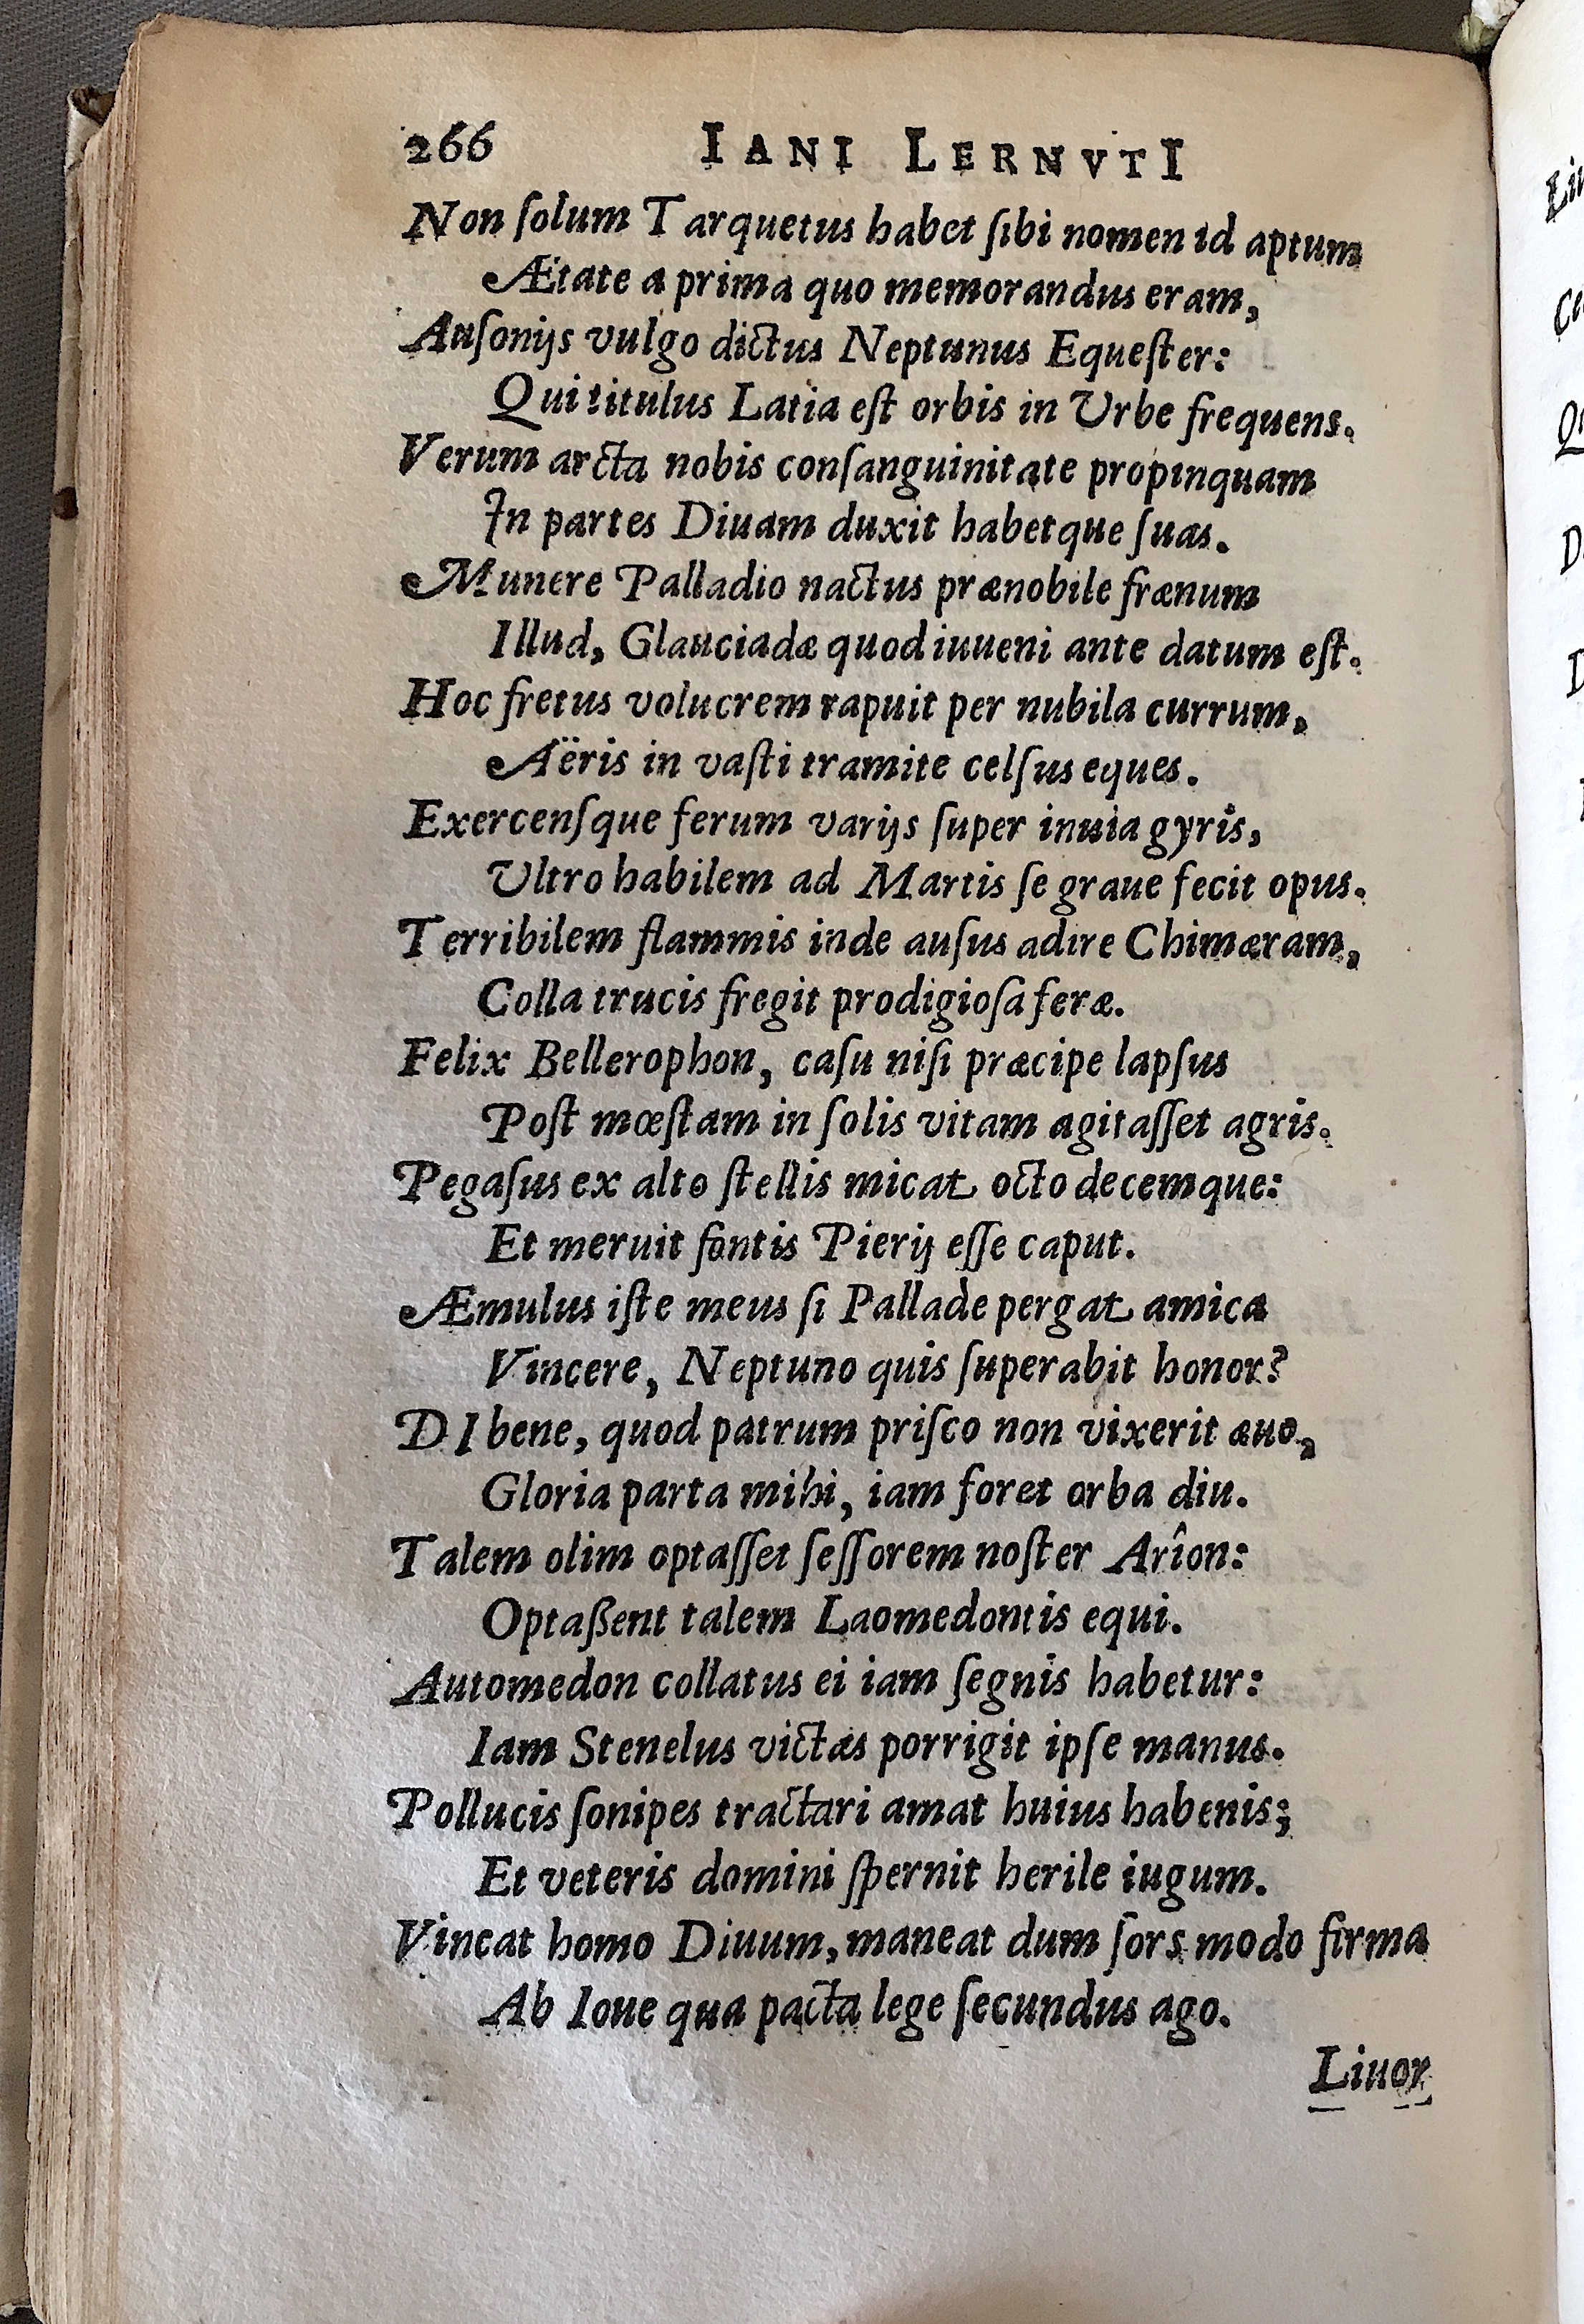 266 IANI LERNVTI
Non ſolum Tarquetus habet ſibi nomen id aptum
Ætate a prima quo memorandus eram,
Auſonijs vulgo dictus Neptunus Equeſter:
Qui titulus Latia eſt orbis in Urbe frequens.
Verum arcta nobis conſanguinitate propinquam
In partes Diuam duxit habetque ſuas.
Munere Palladio nactus prænobile frænum
Illud, Glauciadæ quod iuueni ante datum eſt.
Hoc fretus volucrem rapuit per nubila currum,
Aëris in vaſti tramite celſus eques.
Exercenſque ferum varijs ſuper inuia gyris,
Ultro habilem ad Martis ſe graue fecit opus.
Terribilem flammis inde auſus adire Chimæram,
Colla trucis fregit prodigioſa feræ.
Felix Bellerophon, caſu niſi præcipe lapſus
Poſt mœſtam in ſolis vitam agitaſſet agris.
Pegaſus ex alto ſtellis micat octo decemque:
Et meruit fontis Pierij eſſe caput.
Æmulus iſte meus ſi Pallade pergat amica
Vincere, Neptuno quis ſuperabit honor?
DI bene, quod patrum priſco non vixerit æuo,
Gloria parta mihi, iam foret orba diu.
Talem olim optaſſet ſeſſorem noſter Arîon:
Optaßent talem Laomedontis equi.
Automedon collatus ei iam ſegnis habetur:
Iam Stenelus victas porrigit ipſe manus.
Pollucis ſonipes tractari amat huius habenis;
Et veteris domini ſpernit herile iugum.
Vincat homo Diuum, maneat dum ſors modo firma
Ab Ioue qua pacta lege ſecundus ago.
Liuor